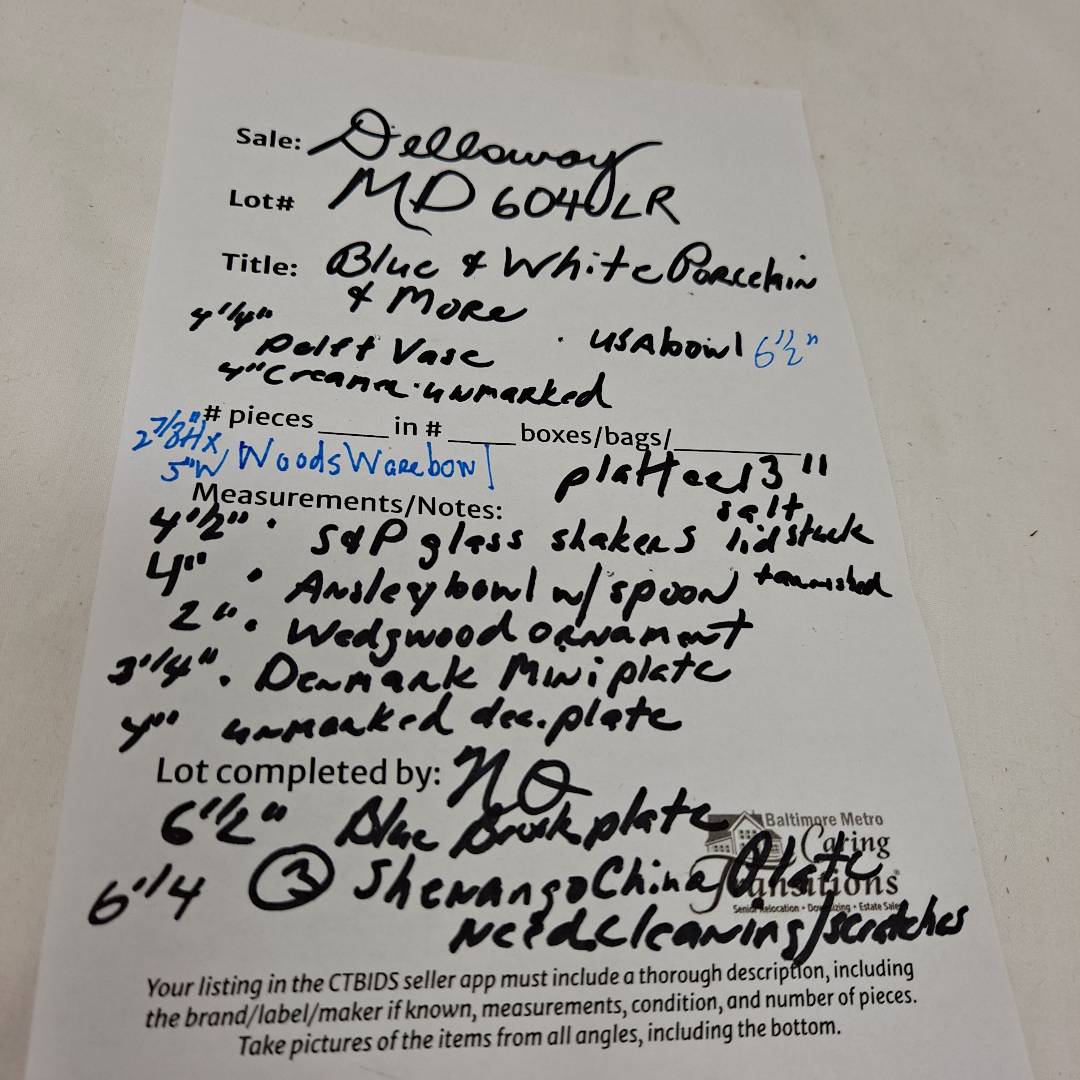 Sale: Delloway
Lot# MD 604 LR
Title: Blue & White Porcelain
& More
4 1/4" Delft Vase
· USA bowl 6 1/2"
4" Creamer · unmarked
# pieces ____ in # ____ boxes/bags/________
2 7/8" H x 5" W Woods Ware bowl
platter 13"
Measurements/Notes:
4 1/2" · S&P glass shakers salt lid stuck
4" · Ansley bowl w/ spoon tarnished
2" · Wedgwood ornament
3 1/4" · Denmark Mini plate
4" unmarked dec. plate
Lot completed by: NO
6 1/2" Blue Brook plate
6 1/4 ③ Shenango China Plate
Need cleaning/scratches
Baltimore Metro
Caring
Transitions
Senior Relocation • Downsizing • Estate Sales
Your listing in the CTBIDS seller app must include a thorough description, including
the brand/label/maker if known, measurements, condition, and number of pieces.
Take pictures of the items from all angles, including the bottom.